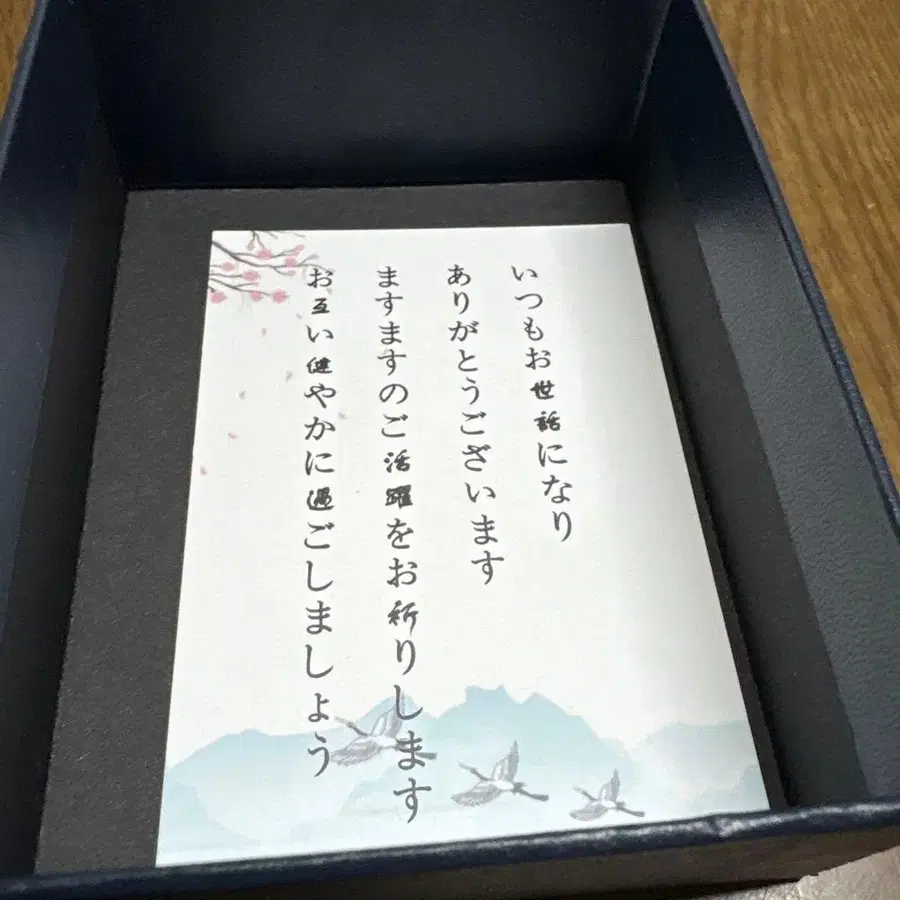 いつもお世話になり
ありがとうございます
ますますのご活躍をお祈りします
お互い健やかに過ごしましょう